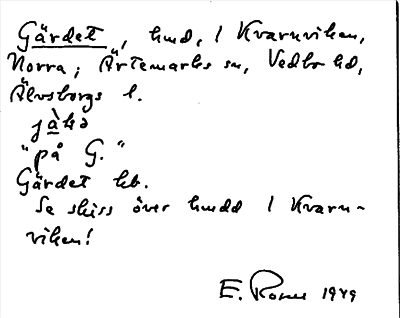 Gärdet, hmd, i Kvarnviken,
Norra; Ärtemarks sn, Vedbo hd,
Älvsborgs l.
"på G."
Gärdet hb.
Se skiss över hmdd i Kvarn-
viken!
E. Rosen 1949